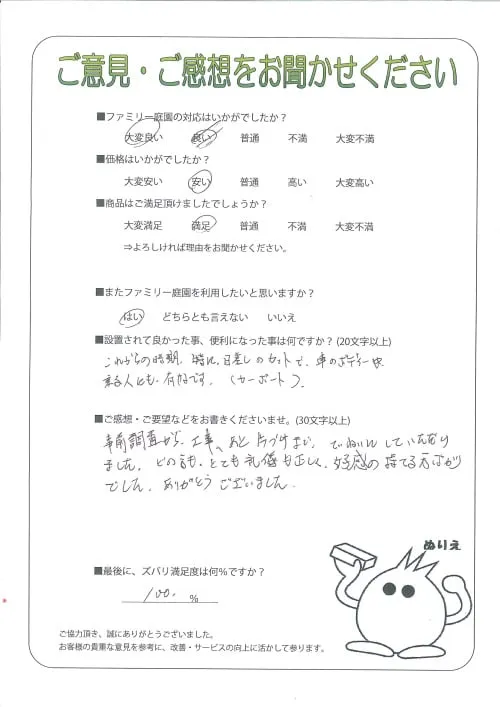 ご意見・ご感想をお聞かせください
■ファミリー庭園の対応はいかがでしたか？
大変良い 良い 普通 不満 大変不満
■価格はいかがでしたか？
大変安い 安い 普通 高い 大変高い
■商品はご満足頂けましたでしょうか？
大変満足 満足 普通 不満 大変不満
⇒よろしければ理由をお聞かせください。
■またファミリー庭園を利用したいと思いますか？
はい どちらとも言えない いいえ
■設置されて良かった事、便利になった事は何ですか？(20文字以上)
これからの時期、特に日差しのカットで、車のボディーや
人にも、有効です。(カーポート)
■ご感想・ご要望などをお書きくださいませ。(30文字以上)
事前調査から、工事、あと片づけまで、ていねいにしていただき
ました。どの方も、とても礼儀も正しく、好感の持てる方ばかり
でした。ありがとうございました。
■最後に、ズバリ満足度は何%ですか？
100. %
ぬりえ
ご協力頂き、誠にありがとうございました。
お客様の貴重な意見を参考に、改善・サービスの向上に活かして参ります。